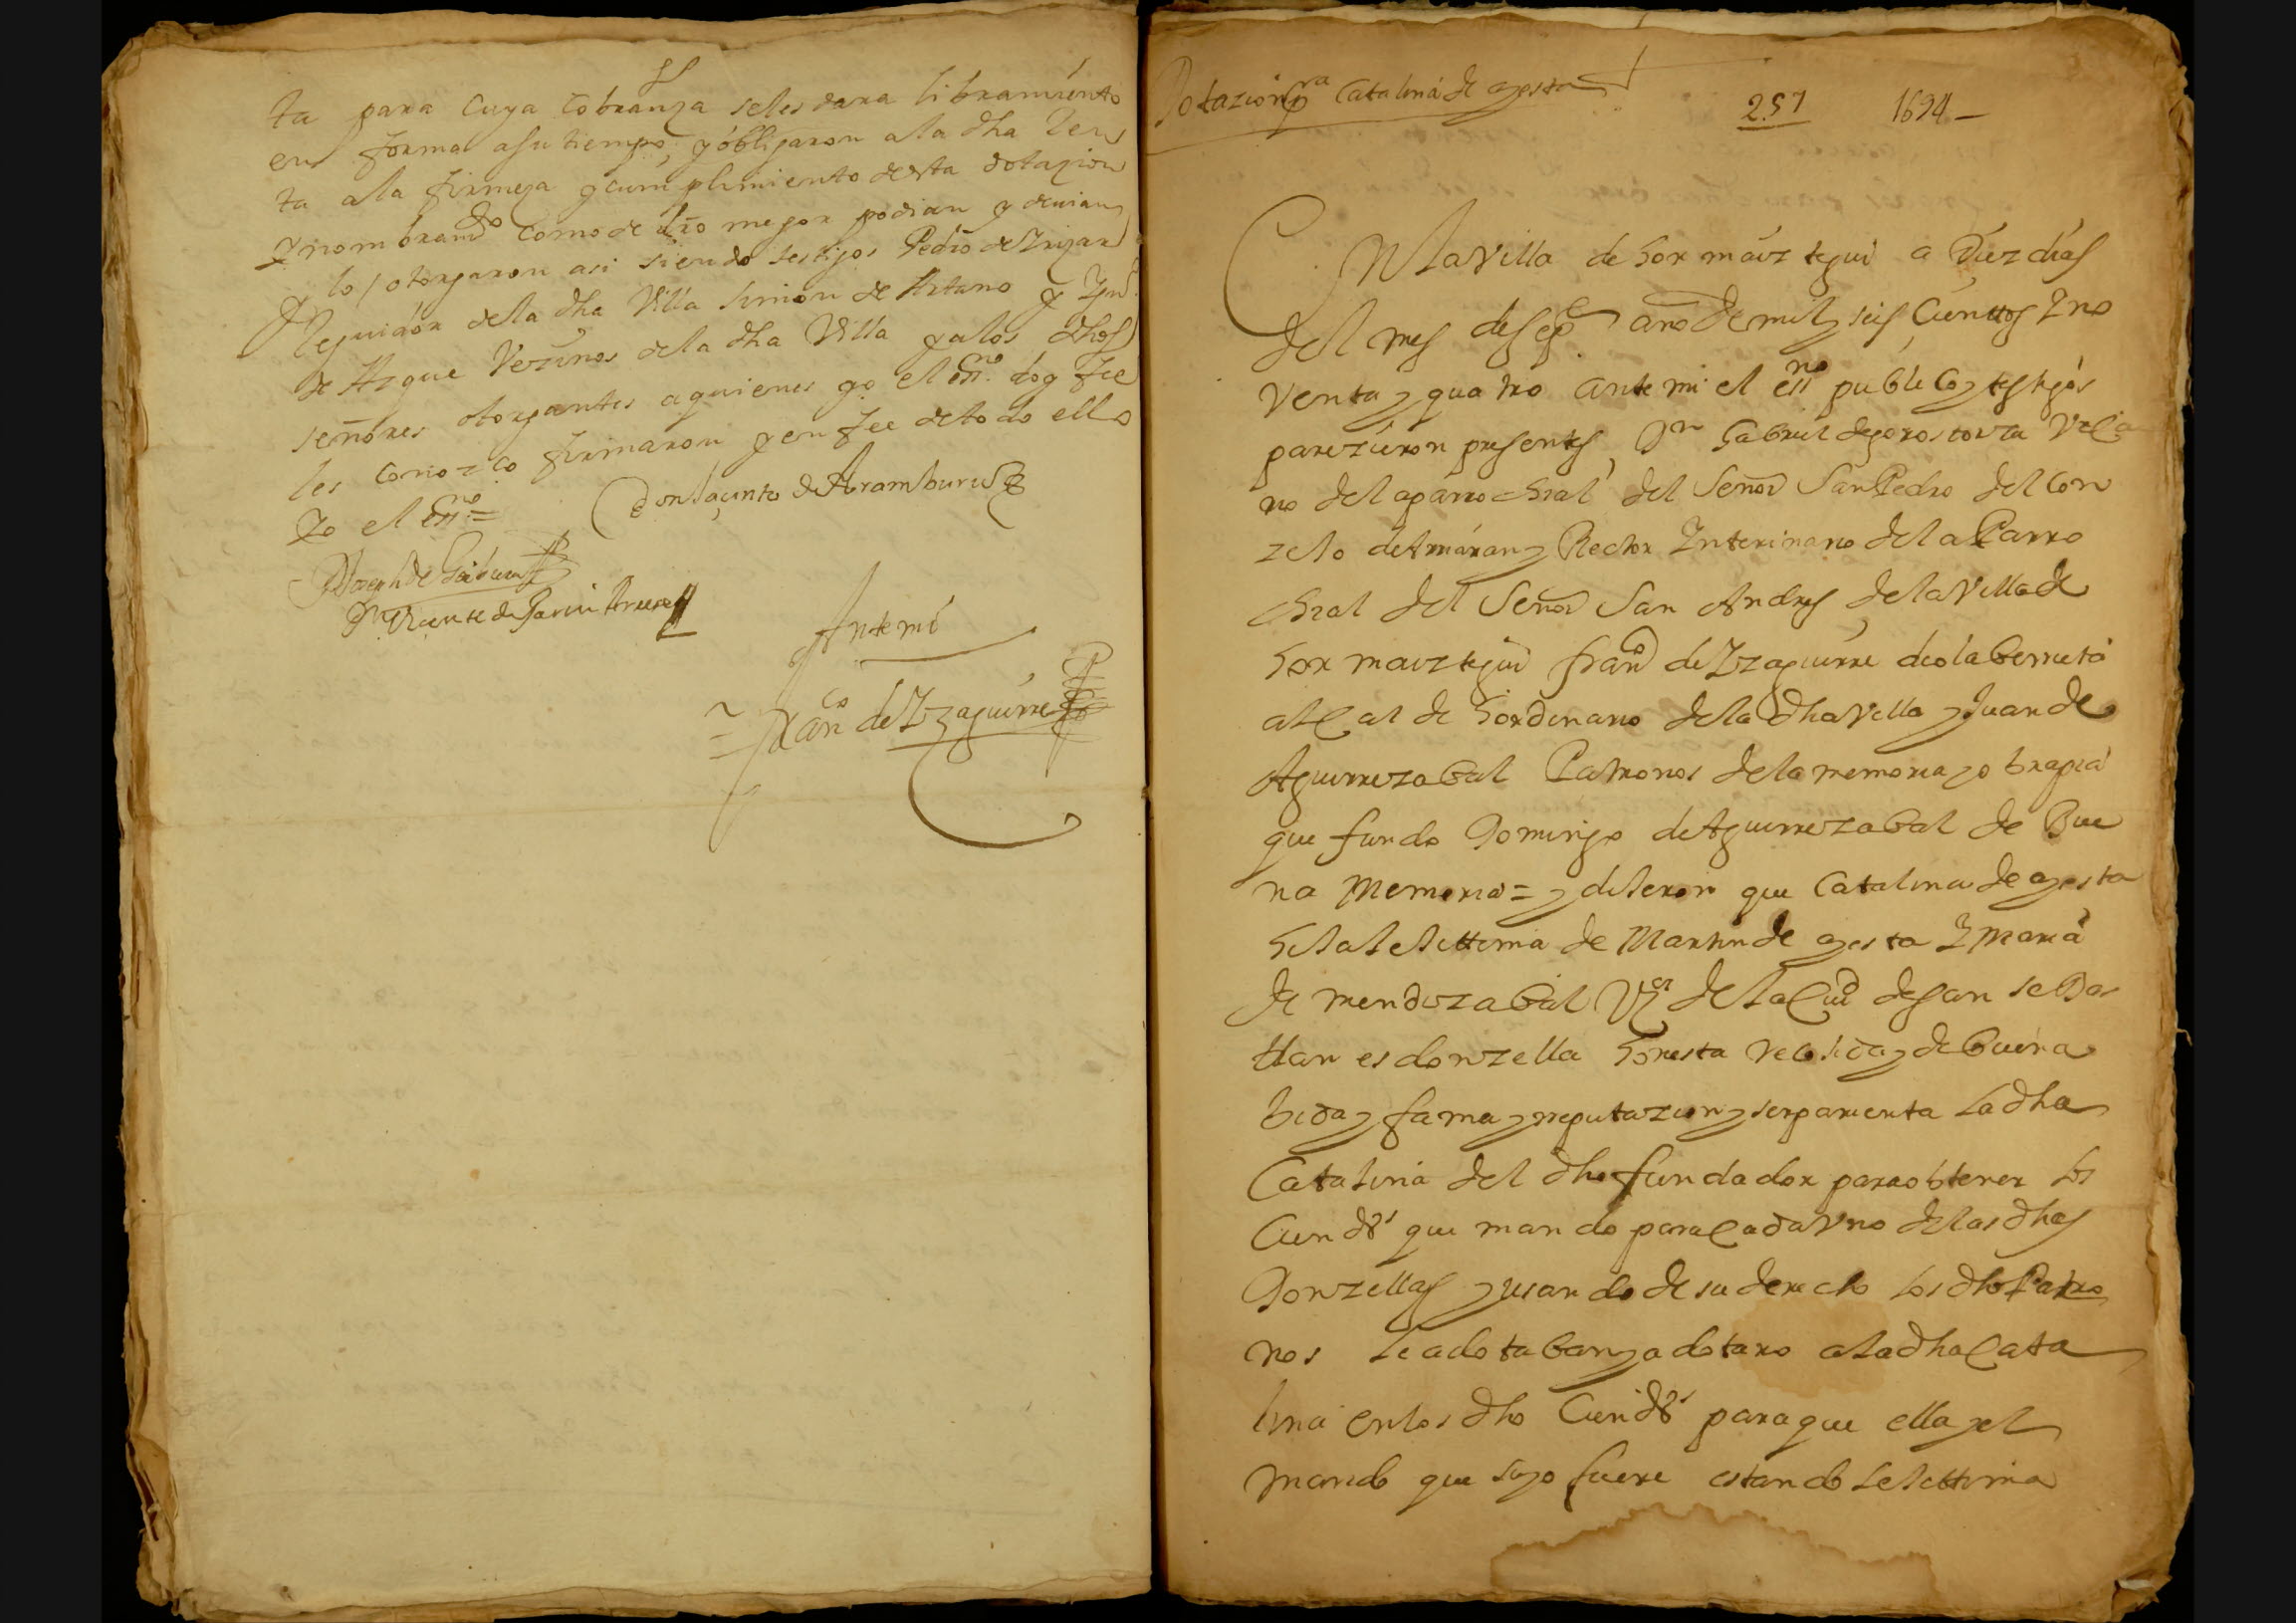 ta para Cuya Cobranza seles dara libramiento
en forma asu tiempo, y obligaron ala dha Ren
ta ala firmeza y cumplimiento desta dotazion
y nombramdo Como de dro mejor podian y devian
lo otorgaron asi siendo testigos Pedro de Yrizar
Regidor dela dha Villa Simon de Artano y
de Azque Vezinos dela dha Villa y alos dhos
señores otorgantes aquienes yo el essno doy fee
les conozco firmaron y en fee de todo ello
Yo el essno =
Don Jaçinto de Aramburu
D Joseph de
Dn Vicente de
Ante mi
Franco de Yzaguirre
Dotazion pra Catalina de ayesta
257 1694
En La Villa de hormaiztegui a Diez dias
del mes de sepe año de mil y seis Cienttos y no
venta y quatro ante mi el essno publico y testigos
parezieron presentes, Dn Gabriel de gorostorzu Veca
rio del aparrochial del Señor San Pedro del Con
zejo de Amaran y Rector Ynterinario dela Parro
chial del Señor San Andres dela Villa de
hormaiztegui franco de Yzaguirre de olaberrieta
alcalde hordinario dela dha Villa y Juan de
Aguirrezabal Patronos dela memoria y obra pia
que fundo Domingo de Aguirrezabal de Bue
na Memoria = y dijeron que Catalina de ayesta
hija lejittima de Martin de ayesta y Maria
de mendizabal Vos dela Ciud de san sebas
tian es donzella honesta recojida y de buena
bida y fama y reputazion y ser parienta La dha
Catalina del dho fundador para obtener los
Cien ds que mando para Cada Uno delas dhas
Donzellas y usando de su derecho los dhos Patro
nos le adotaban y adotaro ala dha Cata
lina en los dho Cien ds para que ella y el
marido que suyo fuere estando lejittima